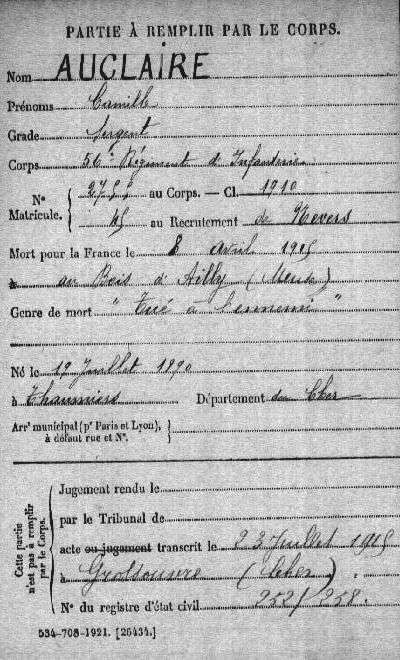 PARTIE À REMPLIR PAR LE CORPS.
Nom AUCLAIRE
Prénoms Camille
Grade Sergent
Corps 56e Régiment d'Infanterie
N° Matricule. { au Corps. — Cl. 1910
45 au Recrutement de Nevers
Mort pour la France le 8 avril 1915
à au Bois d'Ailly (Meuse)
Genre de mort "Tué à l'ennemi"
Né le 12 Juillet 1890
à Chaumiers Département du Cher
Arrt municipal (pr Paris et Lyon), à défaut rue et N°.
Cette partie n'est pas à remplir par le Corps.
Jugement rendu le
par le Tribunal de
acte ou jugement transcrit le 23 Juillet 1915
à Grossouvre (Cher)
N° du registre d'état civil 252/258.
534-708-1921. [26434.]